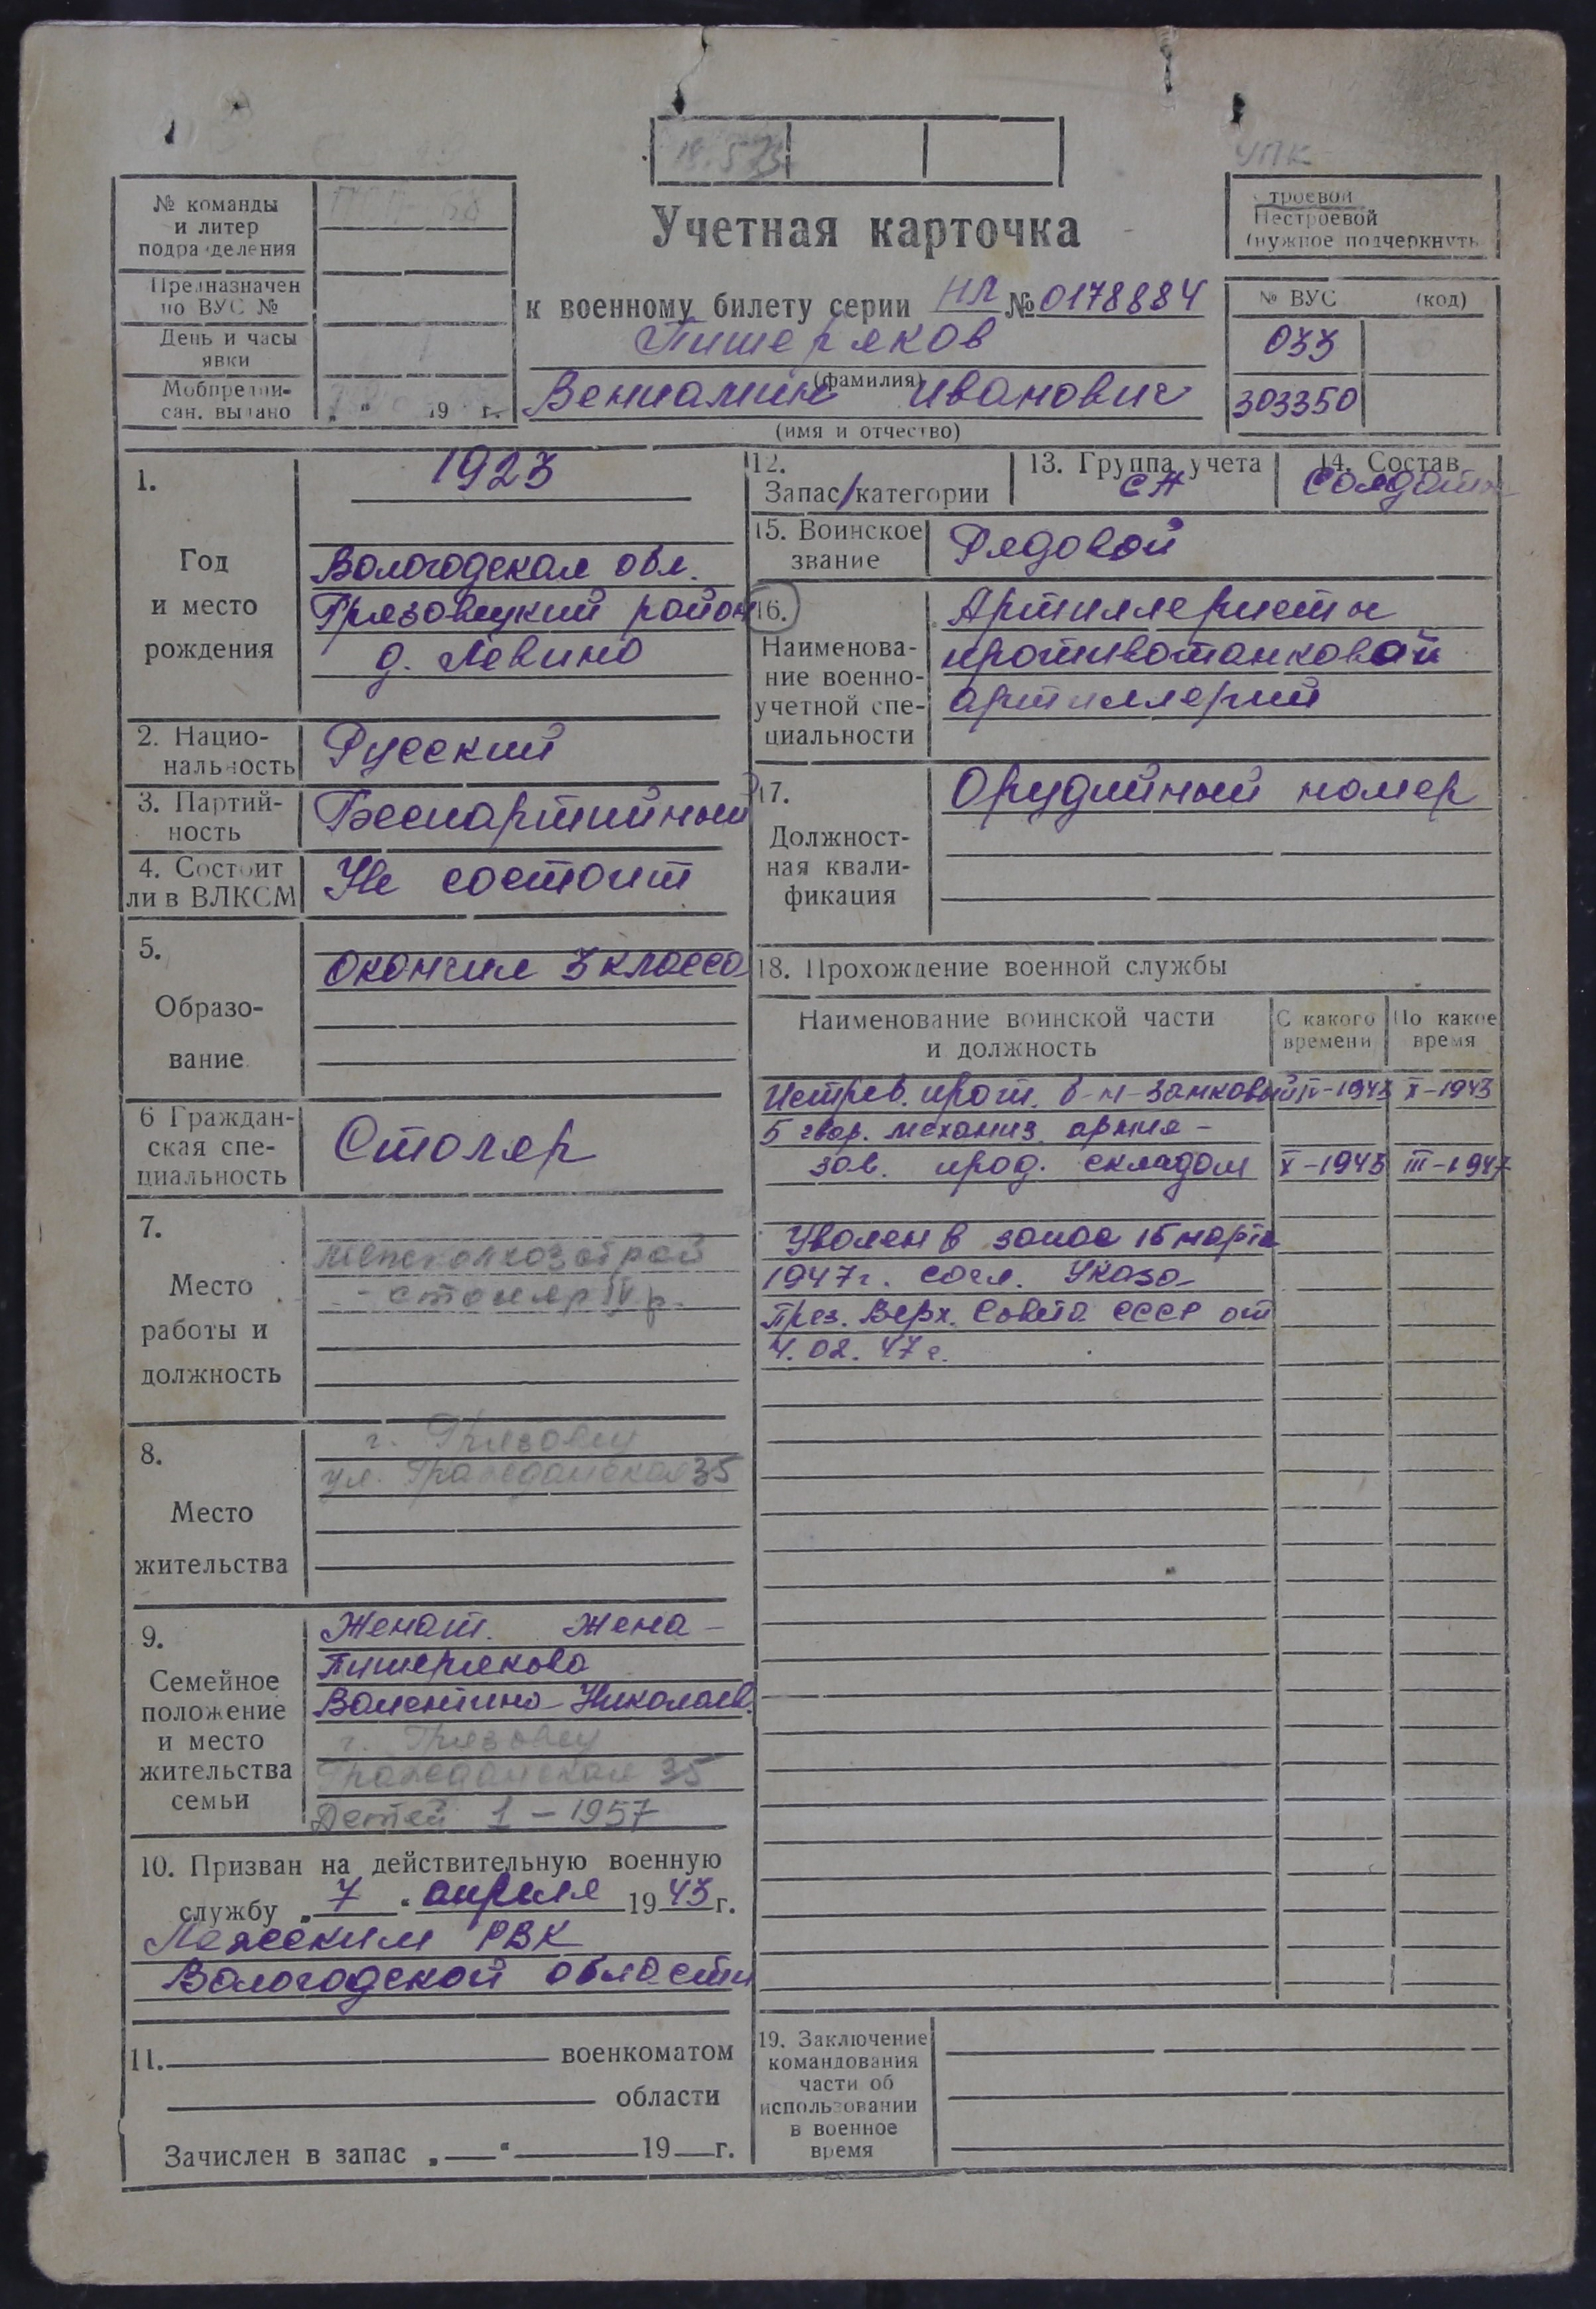 УПК
№ команды
и литер
подразделения
Предназначен
по ВУС №
День и часы
явки
Мобпредпи-
сан. выдано „ “ 19 г.
Учетная карточка
к военному билету серии НЛ № 0178884
Пишеряков
(фамилия)
Вениамин Иванович
(имя и отчество)
Строевой
Нестроевой
(нужное подчеркнуть
№ ВУС (код)
033
303350
1.
Год
и место
рождения
1923
Вологодская обл.
Грязовецкий район
д. Левино
2. Нацио-
нальность
Русский
3. Партий-
ность
Беспартийный
4. Состоит
ли в ВЛКСМ
Не состоит
5.
Образо-
вание
Окончил 3 класса
6 Граждан-
ская спе-
циальность
Столяр
7.
Место
работы и
должность
Межколхозстрой
- столяр IV р.
8.
Место
жительства
г. Грязовец
ул. Гражданская 35
9.
Семейное
положение
и место
жительства
семьи
Женат. Жена -
Пишерякова
Валентина Николаев.
г. Грязовец
Гражданская 35
Детей 1 - 1957
10. Призван на действительную военную
службу „ 7 “ апреля 1943 г.
Лежским РВК
Вологодской области
11. военкоматом
области
Зачислен в запас „ “ 19 г.
12.
Запас/категории
13. Группа учета
СА
14. Состав
Солдаты
15. Воинское
звание
Рядовой
16.
Наименова-
ние военно-
учетной спе-
циальности
Артиллеристы
противотанковой
артиллерии
17.
Должност-
ная квали-
фикация
Орудийный номер
18. Прохождение военной службы
Наименование воинской части
и должность
С какого
времени
По какое
время
Истреб. прот. б-н - замковый IV-1943 X-1943
5 гвар. механиз. армия -
зав. прод. складом X-1943 III-1947
Уволен в запас 15 марта
1947 г. согл. Указа
През. Верх. Совета СССР от
4.02.47 г.
19. Заключение
командования
части об
использовании
в военное
время